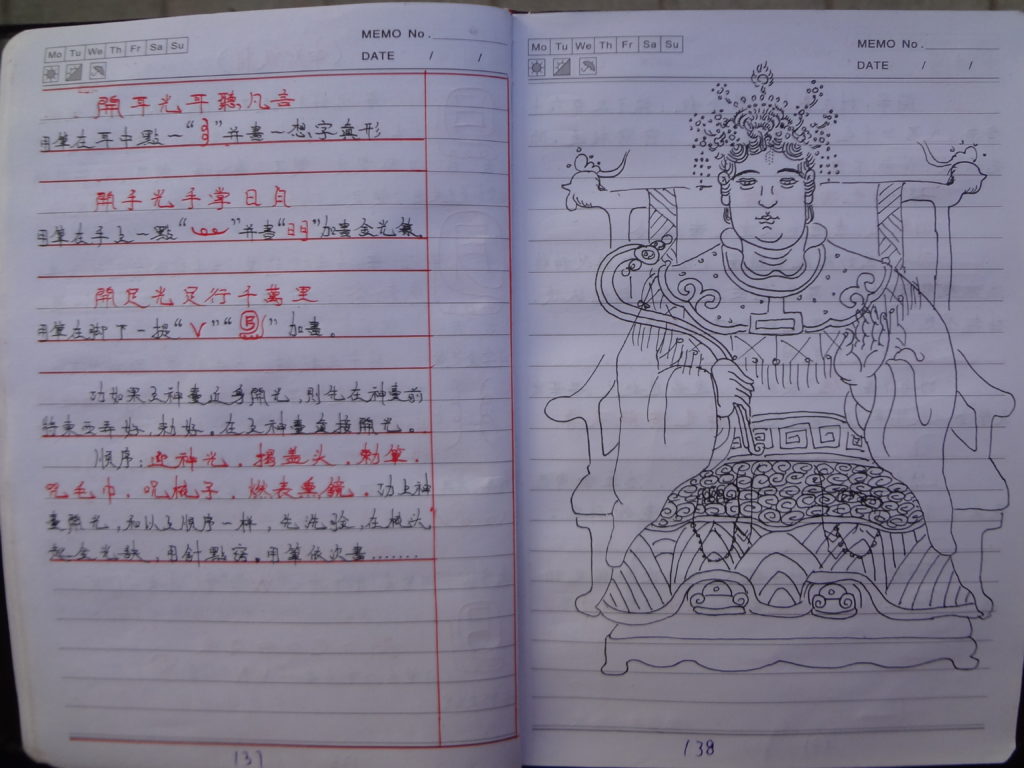 Mo Tu We Th Fr Sa Su
MEMO No.
DATE / /
開耳光耳聽凡音
用筆在耳中點一“ ”并畫一想字盘形
開手光手掌日月
用筆在手上一點“ ”并書“明”加書金光錢
開足光足行千萬里
用筆在脚下一捉“ ”“ ”加畫。
功如果又神畫近身開光,則先在神畫前
將東西弄好,勅好。在又神畫直接開光。
順序:迎神光,揭盖头,勅筆,
咒毛巾,咒梳子,燃表熏鏡,功上神
畫開光,和以又順序一样,先洗脸,在梳头
起金光訣,用針點竅。用筆依次畫......
137
Mo Tu We Th Fr Sa Su
MEMO No.
DATE / /
138